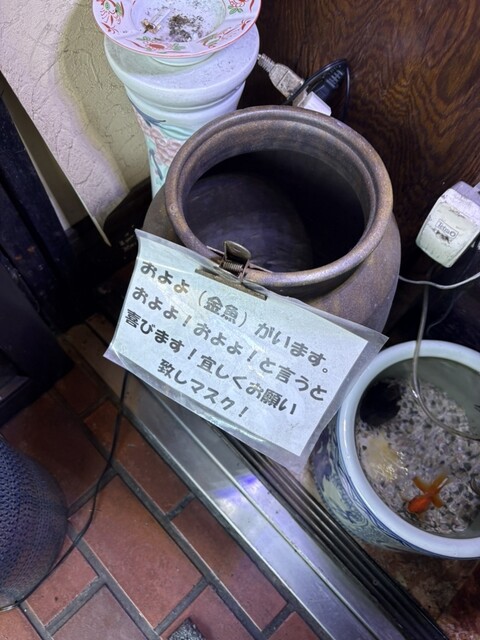 およよ（金魚）がいます。
およよ！およよ！と言うと
喜びます！宜しくお願い
致しマスク！